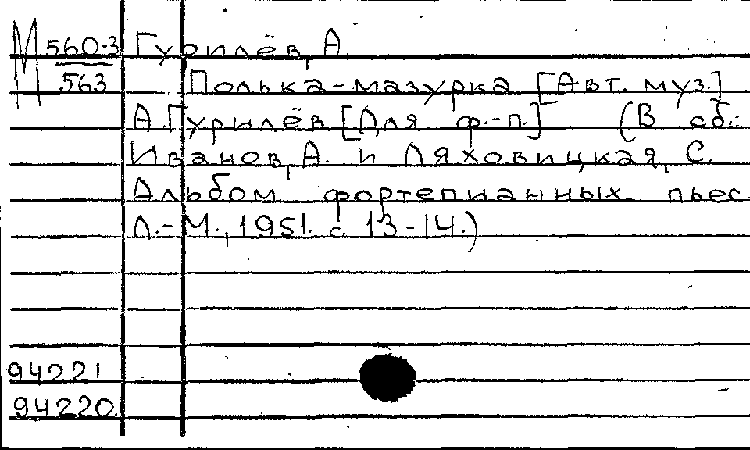 М 560-3 Гурилёв, А
563 Полька-мазурка [Авт. муз.]
А.Гурилёв [Для ф.-п.] (В сб.:
Иванов, А. и Ляховицкая, С.
Альбом фортепианных пьес
Л.-М., 1951. с. 13-14.)
94221
94220